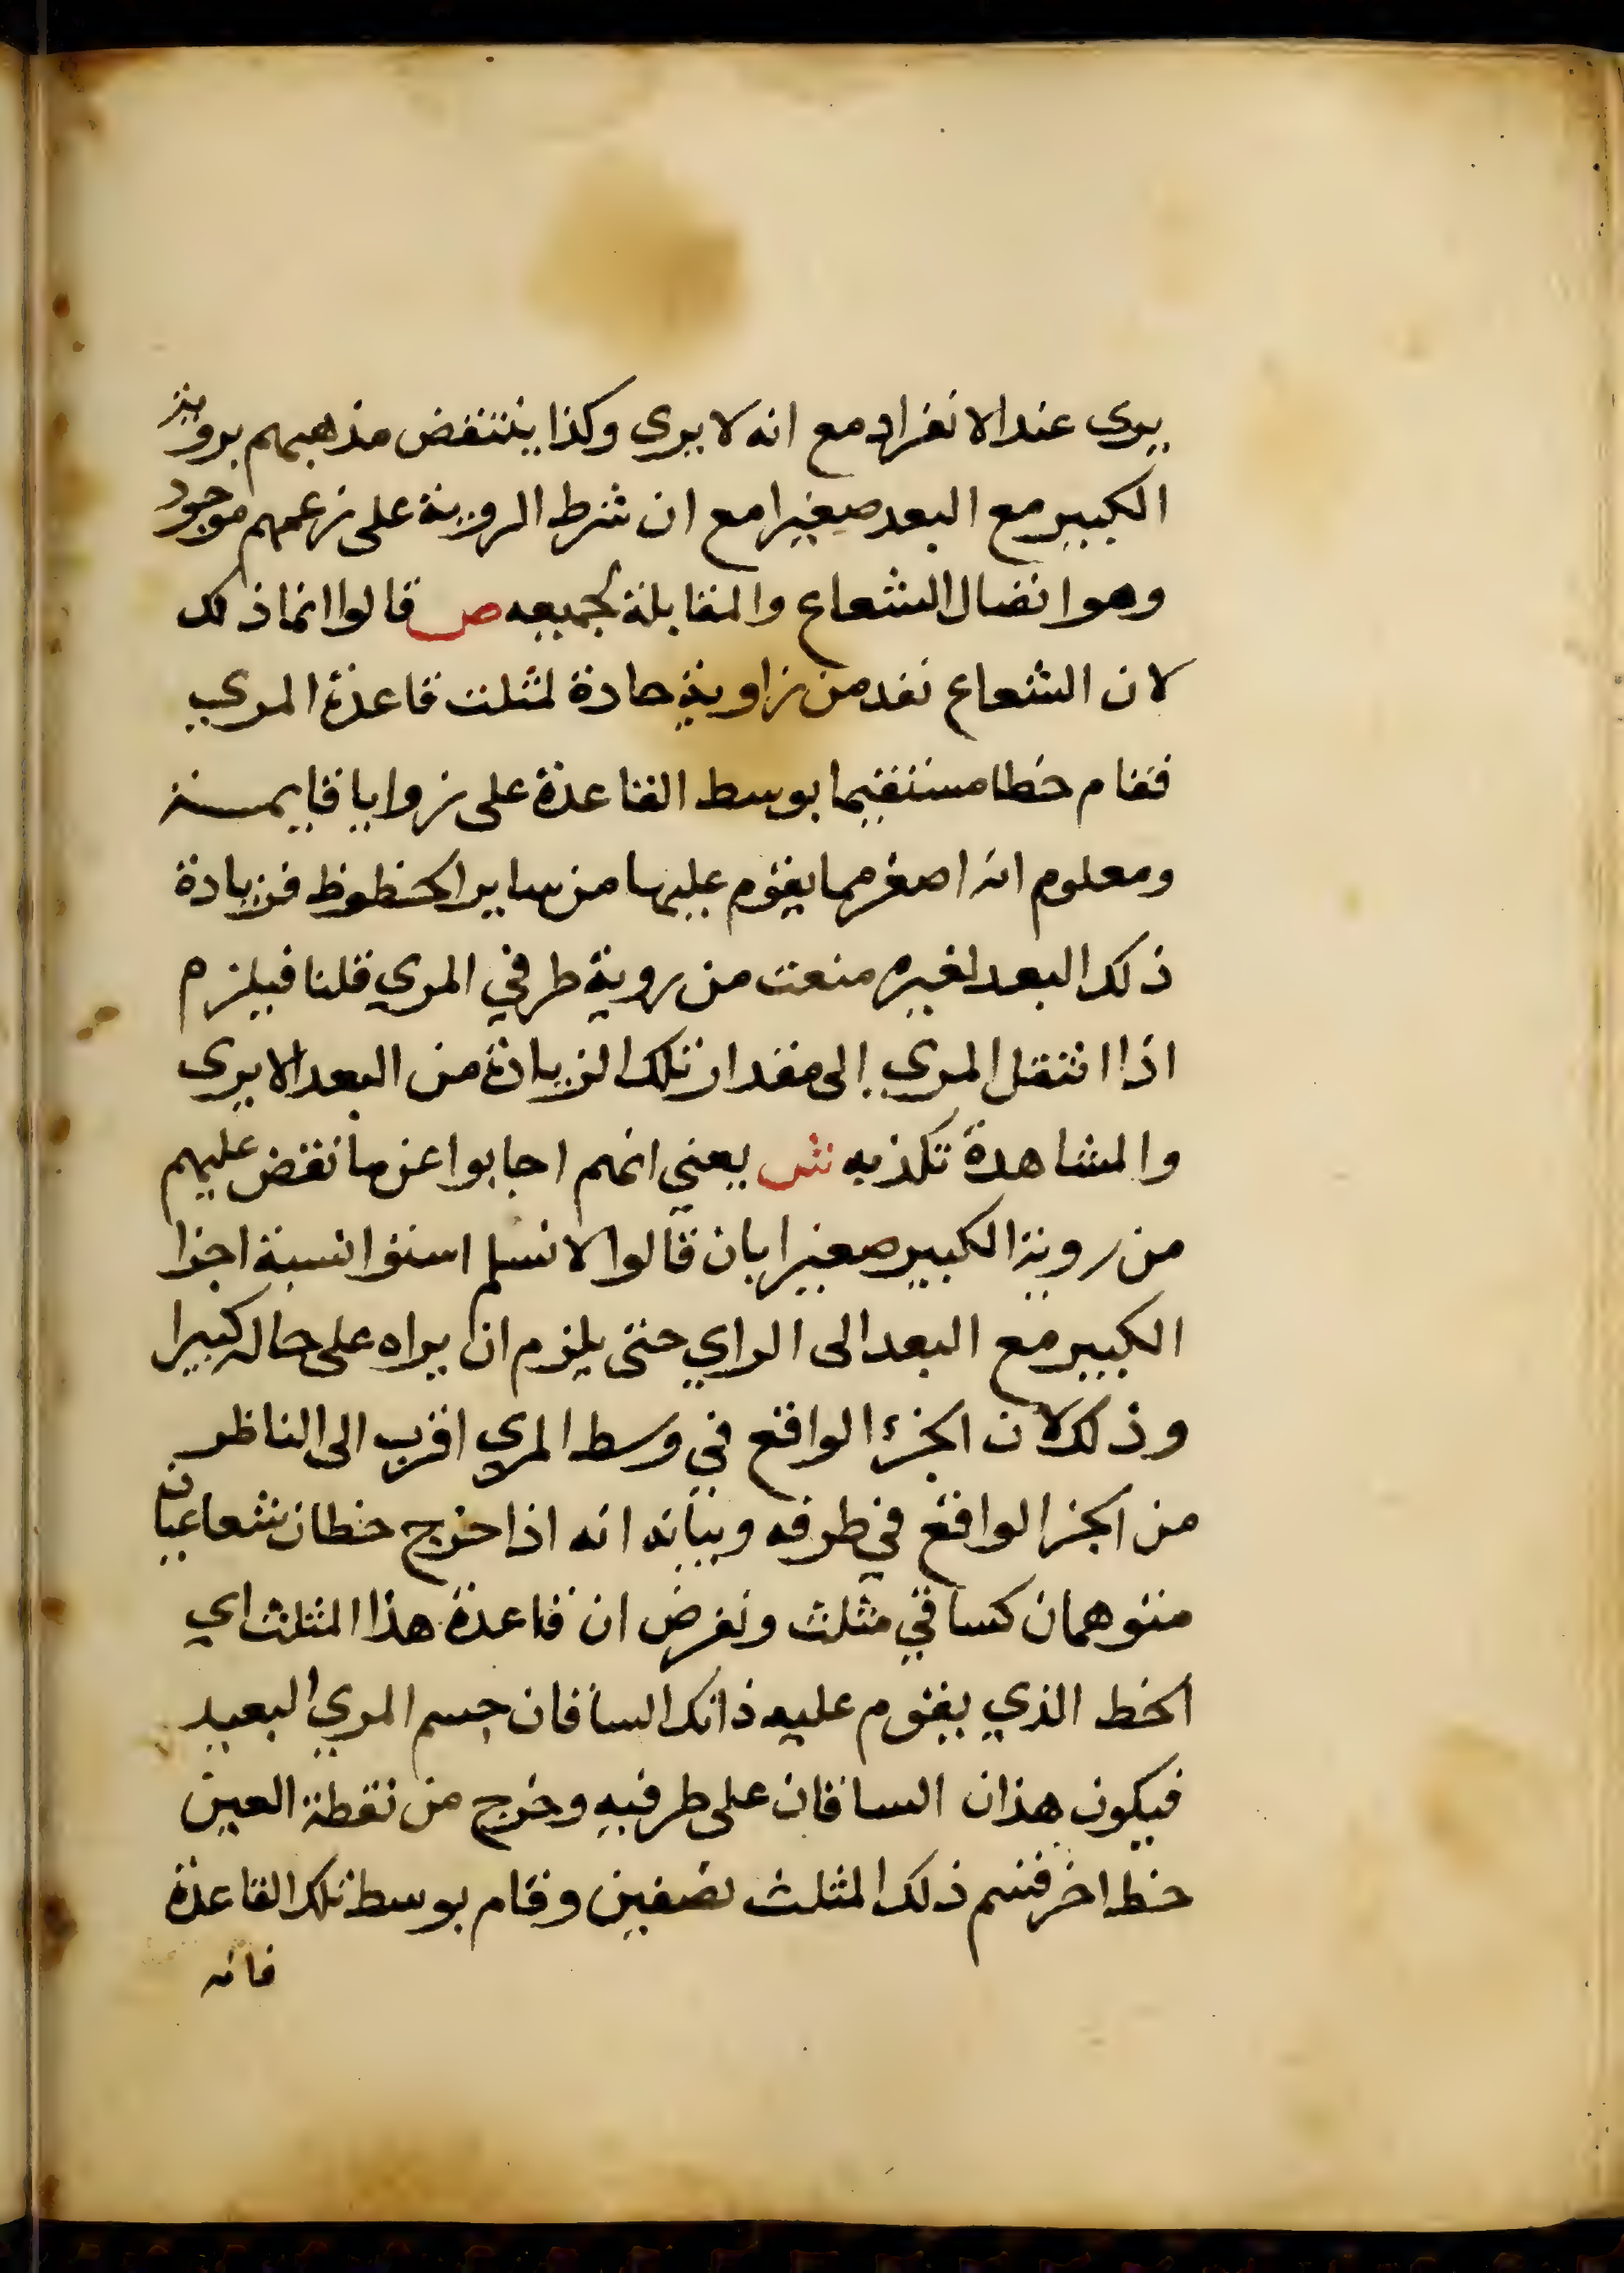 يرى عند الانفراد مع انه لا يرى وكذا ينتقض مذهبهم بروية
الكبير مع البعد صغيرا مع ان شرط الروية على زعمهم موجود
وهو اتصال الشعاع والمقابلة لجميعه ص قالوا انما ذلك
لان الشعاع نفد من زاوية حادة لمثلث قاعدة المري
فقام خطا مستقيما بوسط القاعدة على زوايا قايمة
ومعلوم انه اصغر مما يقوم عليها من ساير الخطوط فزيادة
ذلك البعد لغيره منعت من روية طرفي المري قلنا فيلزم
اذا انتقل المري الى مقدار تلك الزيادة من البعد الا يرى
والمشاهدة تكذبه ش يعني انهم اجابوا عن ما نقض عليهم
من روية الكبير صغيرا بان قالوا لا نسلم استوا نسبة اجزا
الكبير مع البعد الى الراي حتى يلزم ان يراه على حاله كبيرا
وذلك لان الجزء الواقع في وسط المري اقرب الى الناظر
من الجز الواقع في طرفه وبيانه انه اذا خرج خطان شعاعيان
متوهمان كساقي مثلث ونفرض ان قاعدة هذا المثلث اي
الخط الذي يقوم عليه ذانك الساقان جسم المري البعيد
فيكون هذان الساقان على طرفيه وخرج من نقطة العين
خط اخر قسم ذلك المثلث نصفين وقام بوسط تلك القاعدة
فانه